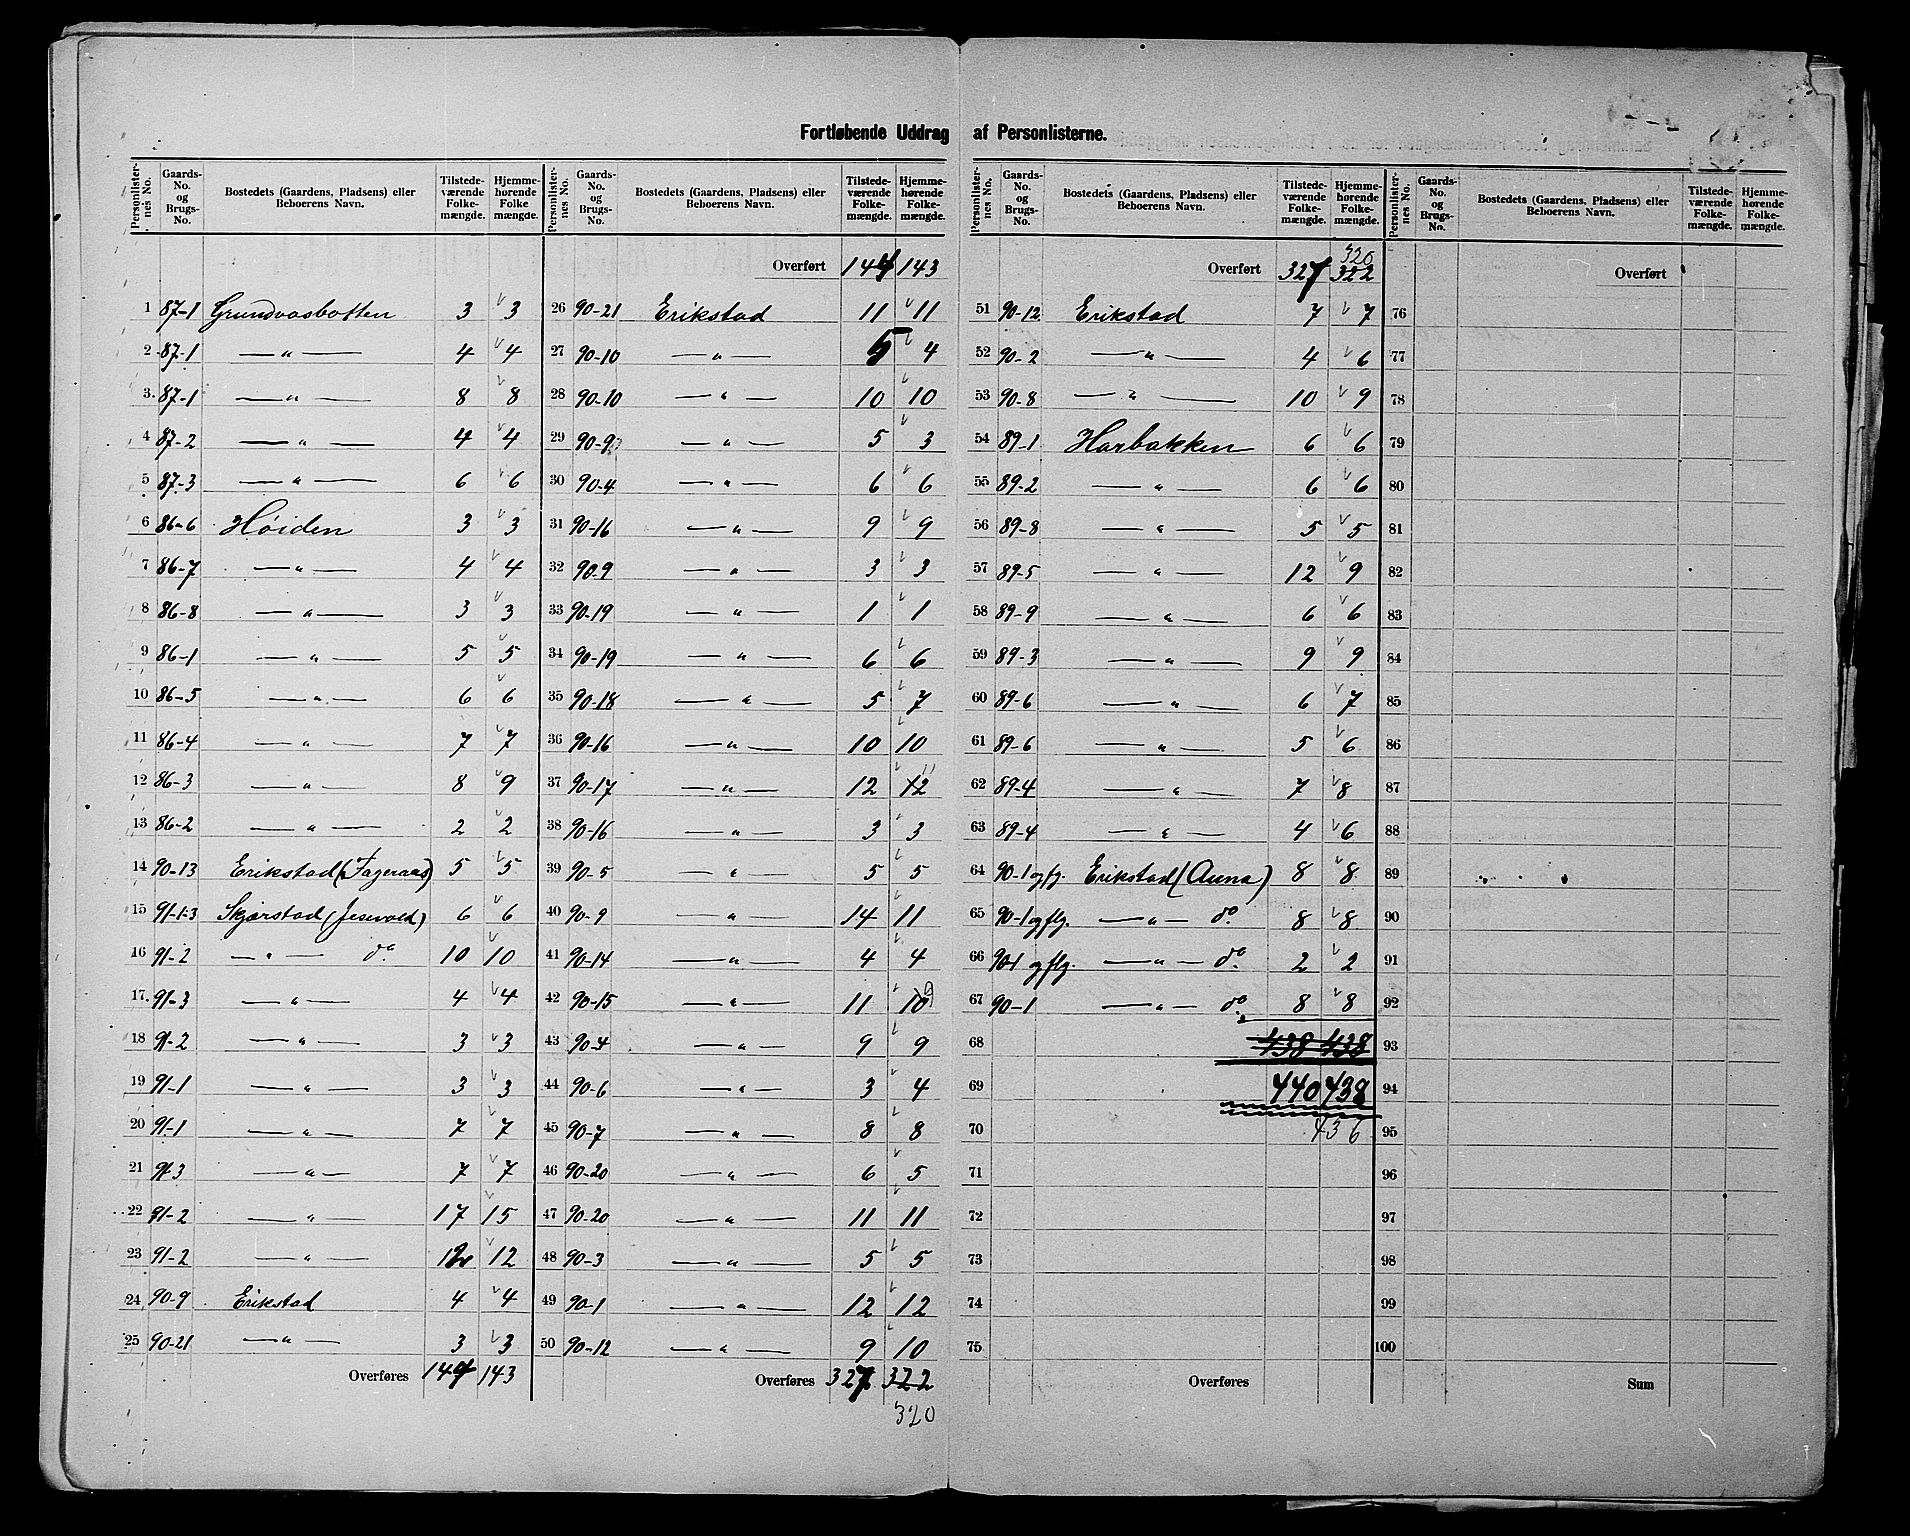 Fortløbende Uddrag af Personlisterne.
Personlisternes No. | Gaards-No. og Brugs-No. | Bostedets (Gaardens, Pladsens) eller Beboerens Navn. | Tilstedeværende Folkemængde. | Hjemmehørende Folkemængde.
1 87-1 Grundvasbotten 3 3
2 87-1 —„— 4 4
3 87-1 —„— 8 8
4 87-2 —„— 4 4
5 87-3 —„— 6 6
6 86-6 Høiden 3 3
7 86-7 —„— 4 4
8 86-8 —„— 3 3
9 86-1 —„— 5 5
10 86-5 —„— 6 6
11 86-4 —„— 7 7
12 86-3 —„— 8 9
13 86-2 —„— 2 2
14 90-13 Erikstad (Fageraas) 5 5
15 91-1-3 Skjørstad (Jesevold) 6 6
16 91-2 —„— do. 10 10
17 91-3 —„— 4 4
18 91-2 —„— 3 3
19 91-1 —„— 3 3
20 91-1 —„— 7 7
21 91-3 —„— 7 7
22 91-2 —„— 17 15
23 91-2 —„— 12 12
24 90-9 Erikstad 4 4
25 90-21 —„— 3 3
Overføres 144 143
Personlisternes No. | Gaards-No. og Brugs-No. | Bostedets (Gaardens, Pladsens) eller Beboerens Navn. | Tilstedeværende Folkemængde. | Hjemmehørende Folkemængde.
Overført 144 143
26 90-21 Erikstad 11 11
27 90-10 —„— 5 4
28 90-10 —„— 10 10
29 90-9 —„— 5 3
30 90-4 —„— 6 6
31 90-16 —„— 9 9
32 90-9 —„— 3 3
33 90-19 —„— 1 1
34 90-19 —„— 6 6
35 90-18 —„— 5 7
36 90-16 —„— 10 10
37 90-17 —„— 12 12 11
38 90-16 —„— 3 3
39 90-5 —„— 5 5
40 90-9 —„— 14 11
41 90-14 —„— 4 4
42 90-15 —„— 11 10 9
43 90-4 —„— 9 9
44 90-6 —„— 3 4
45 90-7 —„— 8 8
46 90-20 —„— 6 5
47 90-20 —„— 11 11
48 90-3 —„— 5 5
49 90-1 —„— 12 12
50 90-12 —„— 9 10
Overføres 327 322
320
Personlisternes No. | Gaards-No. og Brugs-No. | Bostedets (Gaardens, Pladsens) eller Beboerens Navn. | Tilstedeværende Folkemængde. | Hjemmehørende Folkemængde.
320
Overført 327 322
51 90-12 Erikstad 7 7
52 90-2 —„— 4 6
53 90-8 —„— 10 9
54 89-1 Harbakken 6 6
55 89-2 —„— 6 6
56 89-8 —„— 5 5
57 89-5 —„— 12 9
58 89-9 —„— 6 6
59 89-3 —„— 9 9
60 89-6 —„— 6 7
61 89-6 —„— 5 6
62 89-4 —„— 7 8
63 89-4 —„— 4 6
64 90-1 og fg. Erikstad (Auna) 8 8
65 90-1 og flg. —„— do. 8 8
66 90-1 og flg. —„— do. 2 2
67 90-1 —„— do. 8 8
68 438 438
69 440 438
70 436
71
72
73
74
75
Overføres
Personlisternes No. | Gaards-No. og Brugs-No. | Bostedets (Gaardens, Pladsens) eller Beboerens Navn. | Tilstedeværende Folkemængde. | Hjemmehørende Folkemængde.
Overført
76
77
78
79
80
81
82
83
84
85
86
87
88
89
90
91
92
93
94
95
96
97
98
99
100
Sum